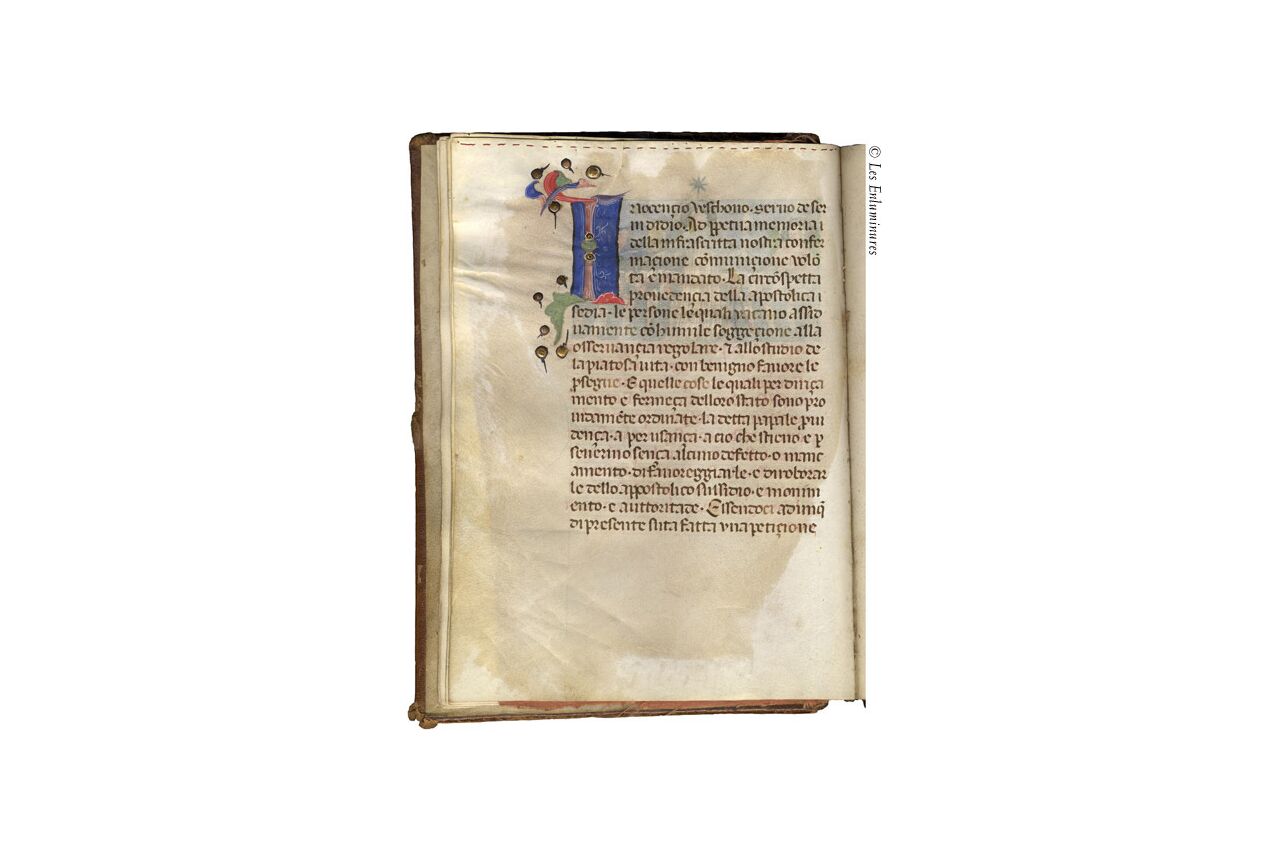 I
nocençio veschovo · servo de ser
ui di dio · Ad perpetua memoria
della infrascritta nostra confer
maçione comuniçione volõ
ta e mandato · La circõspetta
providença della apostolica
sedia · le persone le quali vacano assid
uamente cõ humile soggeçione alla
osservança regolare · ⁊ allo studio de
la piatosa vita · con benigno favore le
ꝑsegue · E quelle cose le quali per
mento e fermeça delloro stato sono pro
ordinate · la detta papale
dença · a per usança · a cio che stieno e ꝑ
severino sença alcuno defetto · o manc
amento · di favoreggiarle · e di roborar
le dello appostolico sussidio · e
ento · e auttoritade · Essendoci
di presente suta fatta una petiçione
© Les Enluminures